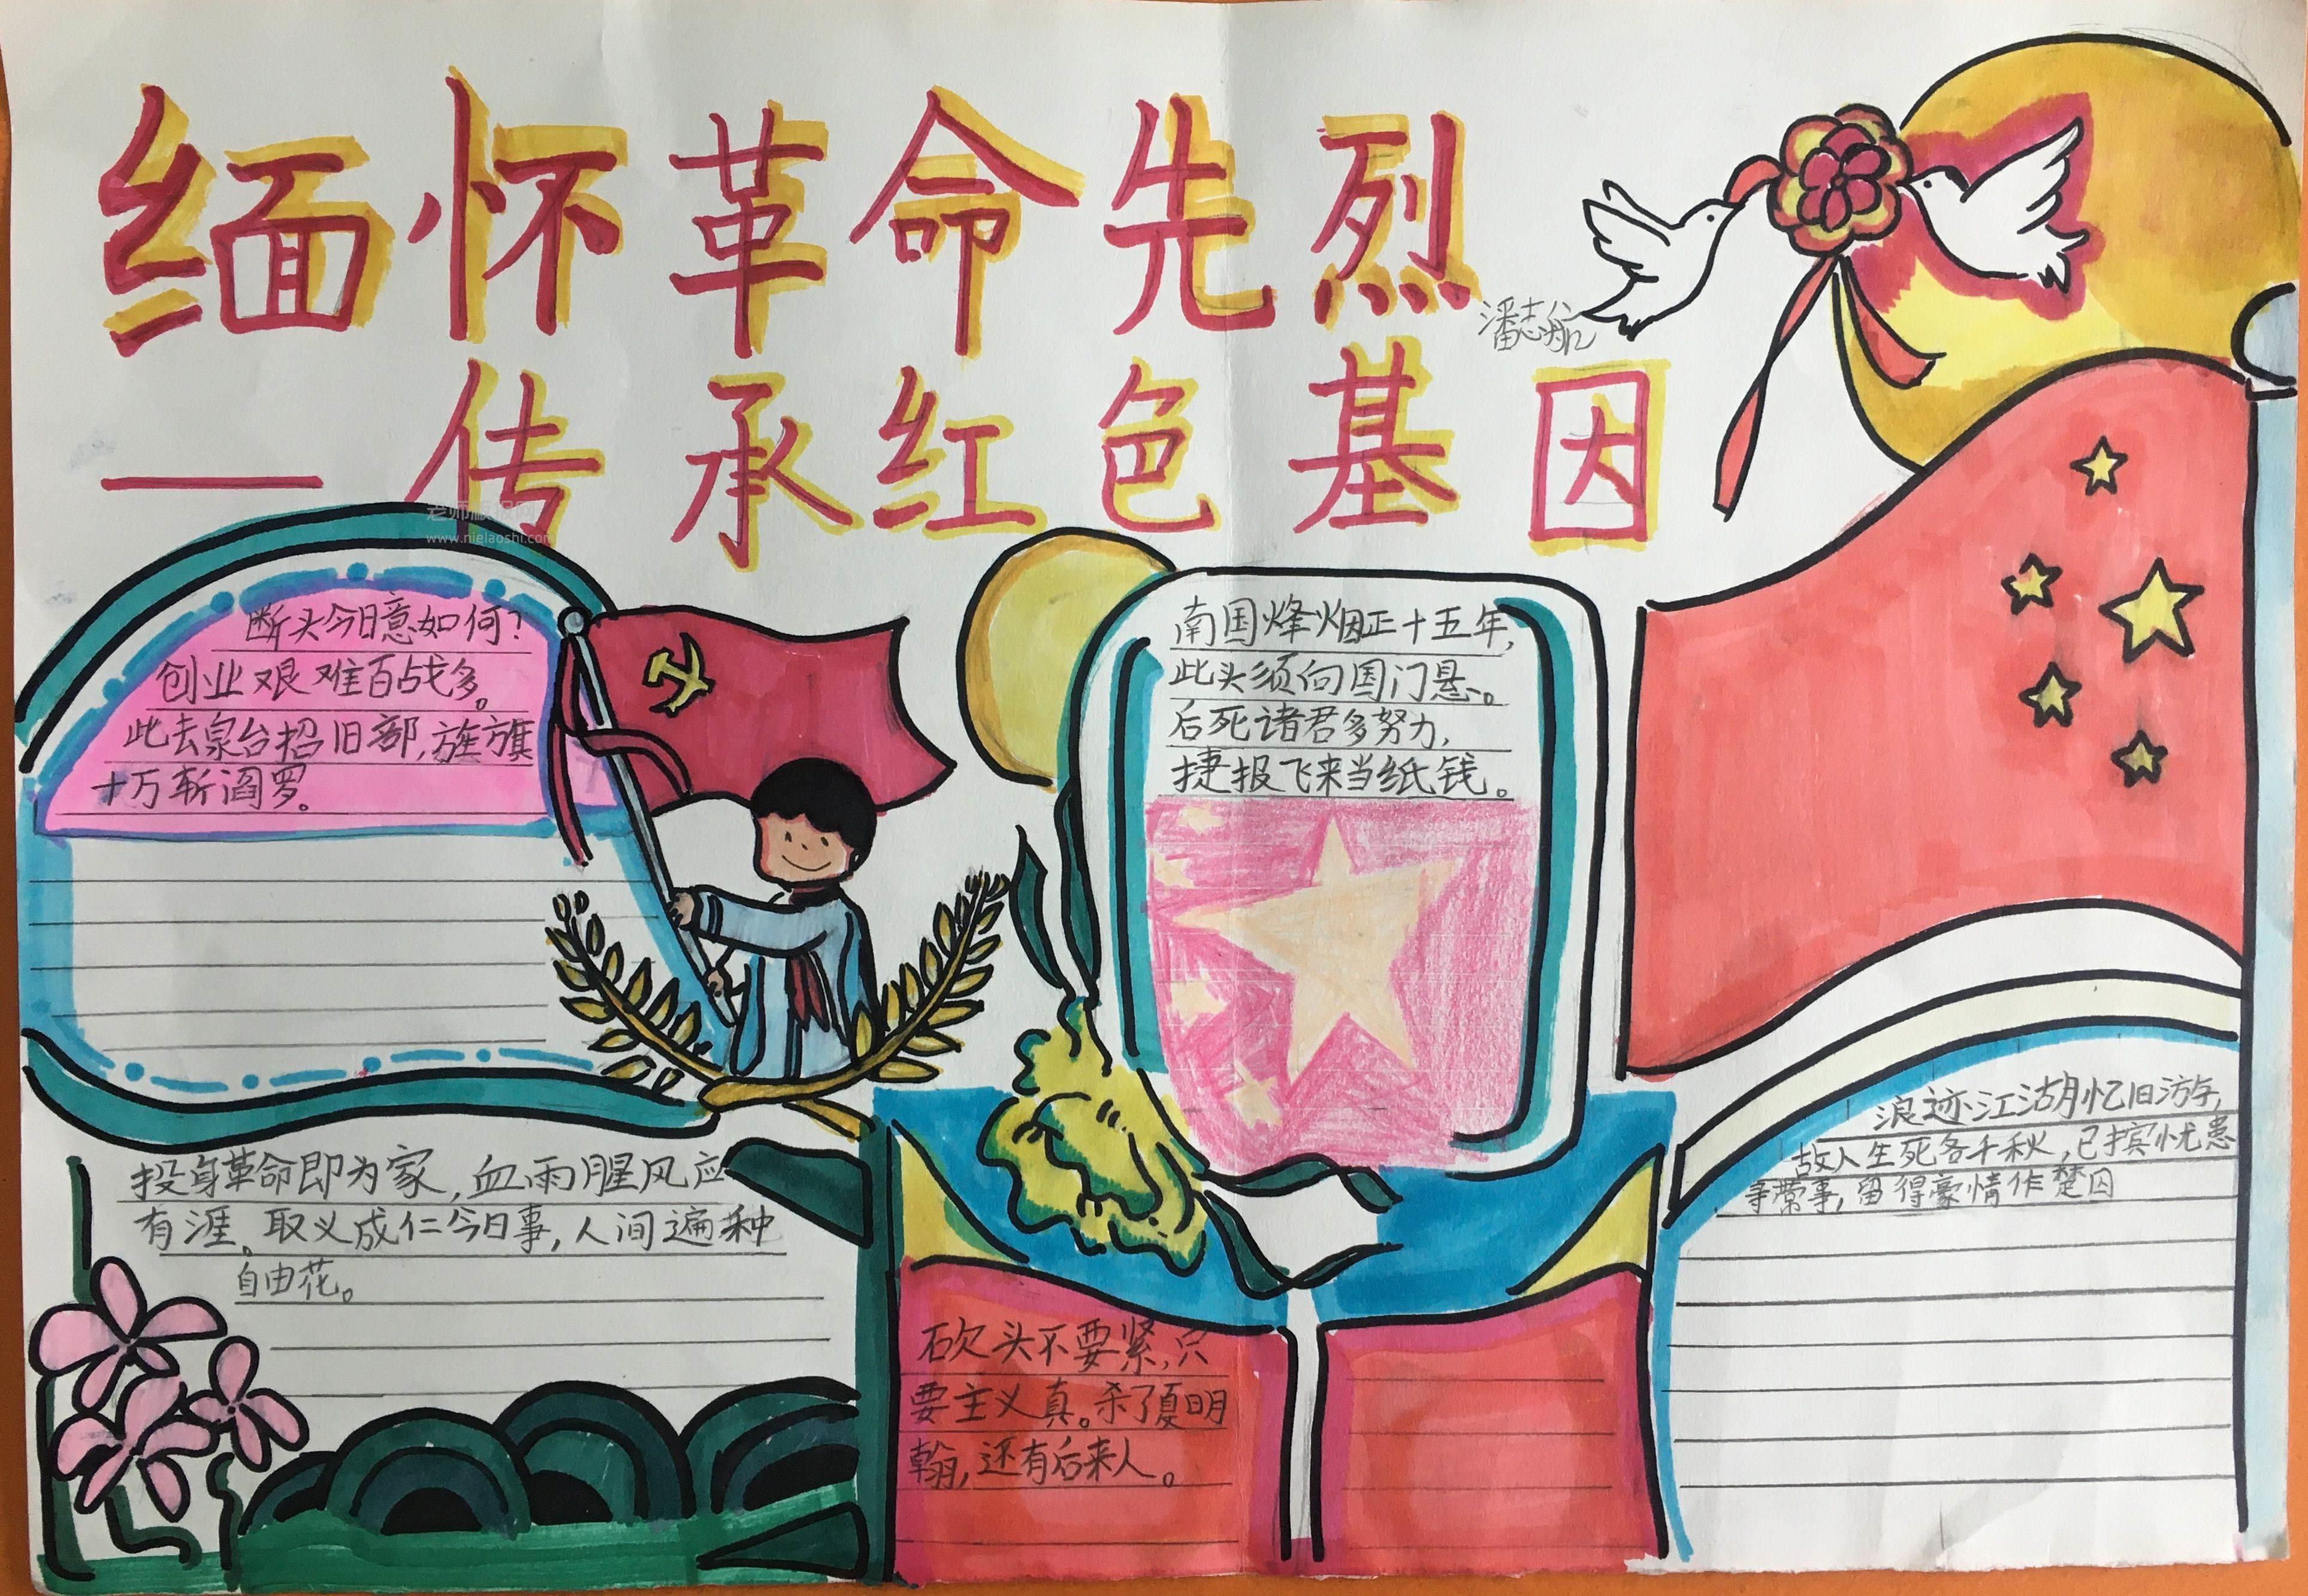 缅怀革命先烈
潘志航
——传承红色基因
www.nielaoshi.com
断头今日意如何?
创业艰难百战多。
此去泉台招旧部,旌旗
十万斩阎罗。
南国烽烟正十五年,
此头须向国门悬。
后死诸君多努力,
捷报飞来当纸钱。
投身革命即为家,血雨腥风应
有涯。取义成仁今日事,人间遍种
自由花。
砍头不要紧,只
要主义真。杀了夏明
翰,还有后来人。
浪迹江湖忆旧游,
故人生死各千秋,已摈忧患
寻常事,留得豪情作楚囚